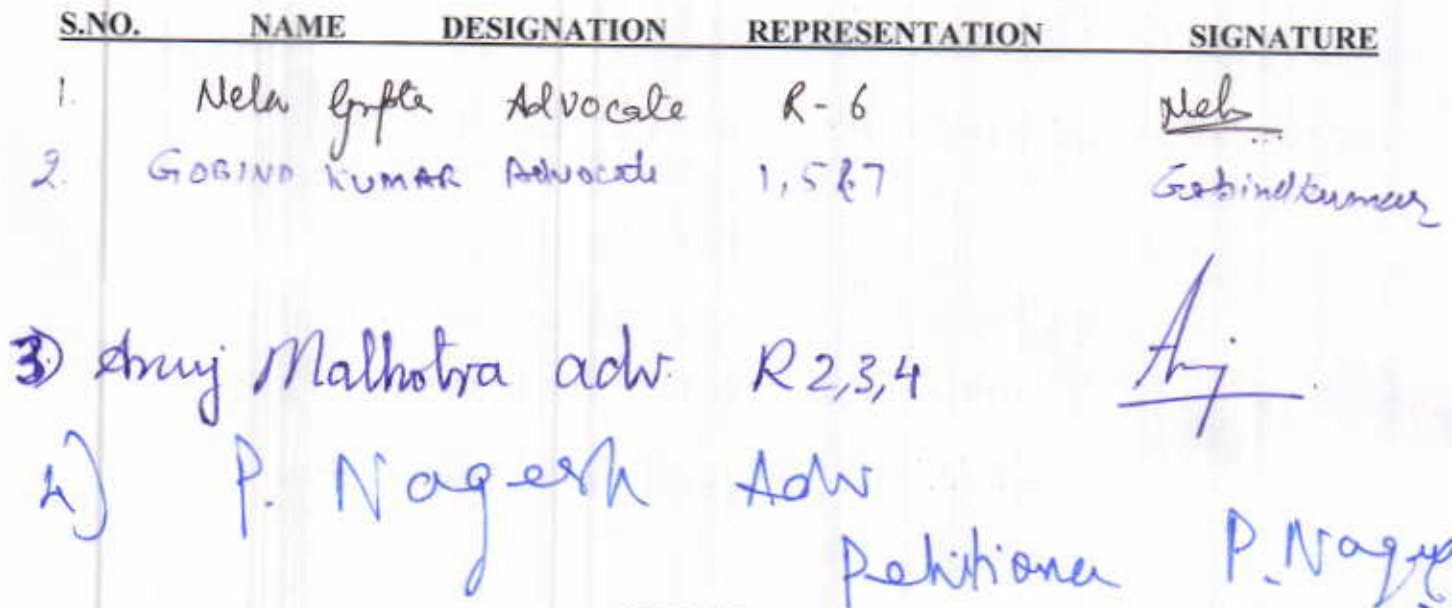 S.NO. NAME DESIGNATION REPRESENTATION SIGNATURE
1. Neha Gupta Advocate R-6 Neha
2. GOBIND KUMAR Advocate 1, 5 & 7 Gobind kumar
3) Anuj Malhotra adv. R 2,3,4 Anuj
4) P. Nagesh Adv
Petitioner P. Nagesh